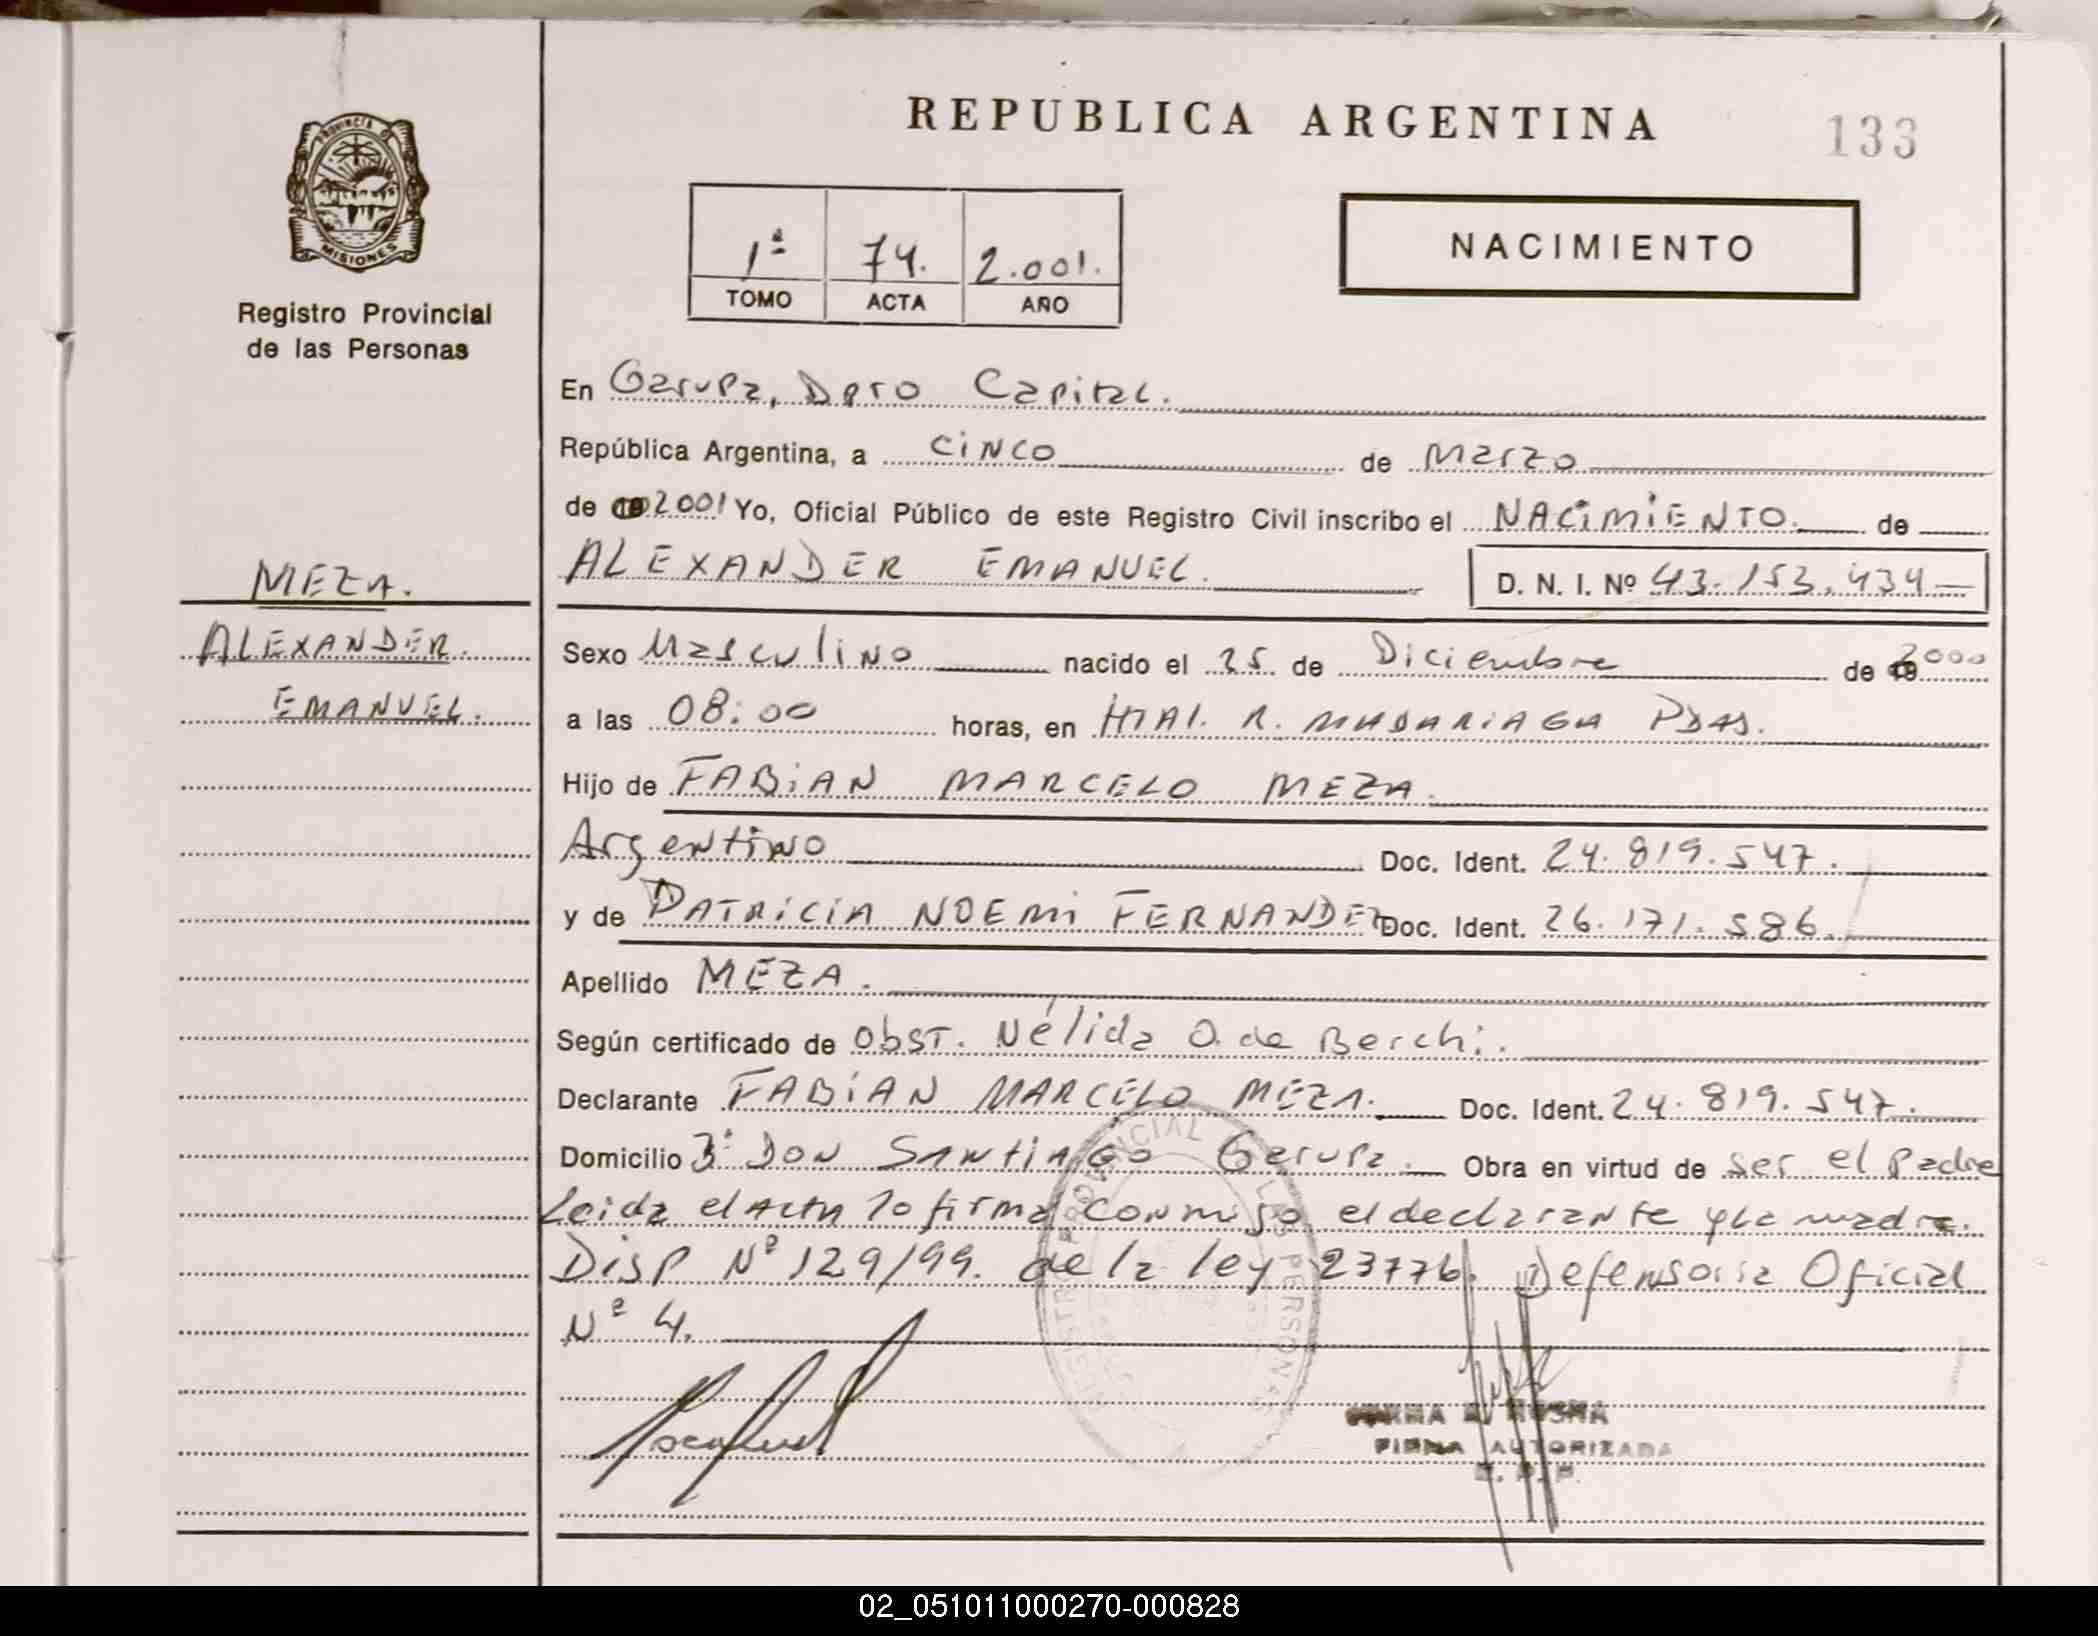 REPUBLICA ARGENTINA
133
PROVINCIA D
MISIONES
Registro Provincial
de las Personas
1ª 74. 2.001.
TOMO ACTA AÑO
NACIMIENTO
En Garupa, Dpto Capital.
República Argentina, a cinco de Marzo
de 2001 Yo, Oficial Público de este Registro Civil inscribo el NACIMIENTO. de
ALEXANDER EMANUEL. D. N. I. Nº 43.153.434
MEZA.
ALEXANDER.
EMANUEL.
Sexo Masculino nacido el 25 de Diciembre de 2000
a las 08:00 horas, en Htal. R. MADARIAGA PDAS.
Hijo de FABIAN MARCELO MEZA.
Argentino Doc. Ident. 24.819.547.
y de PATRICIA NOEMI FERNANDEZ Doc. Ident. 26.171.586.
Apellido MEZA.
Según certificado de Obst. Nélida O. de Berchi.
Declarante FABIAN MARCELO MEZA. Doc. Ident. 24.819.547.
Domicilio Bº DON SANTIAGO Garupa. Obra en virtud de ser el Padre
Leida el ACTA lo firma conmigo el declarante y la madre.
Disp Nº 129/99. de la ley 23776. Defensoria Oficial
Nº 4.
REGISTRO PROVINCIAL DE LAS PERSONAS
FIRMA AUTORIZADA
02_051011000270-000828